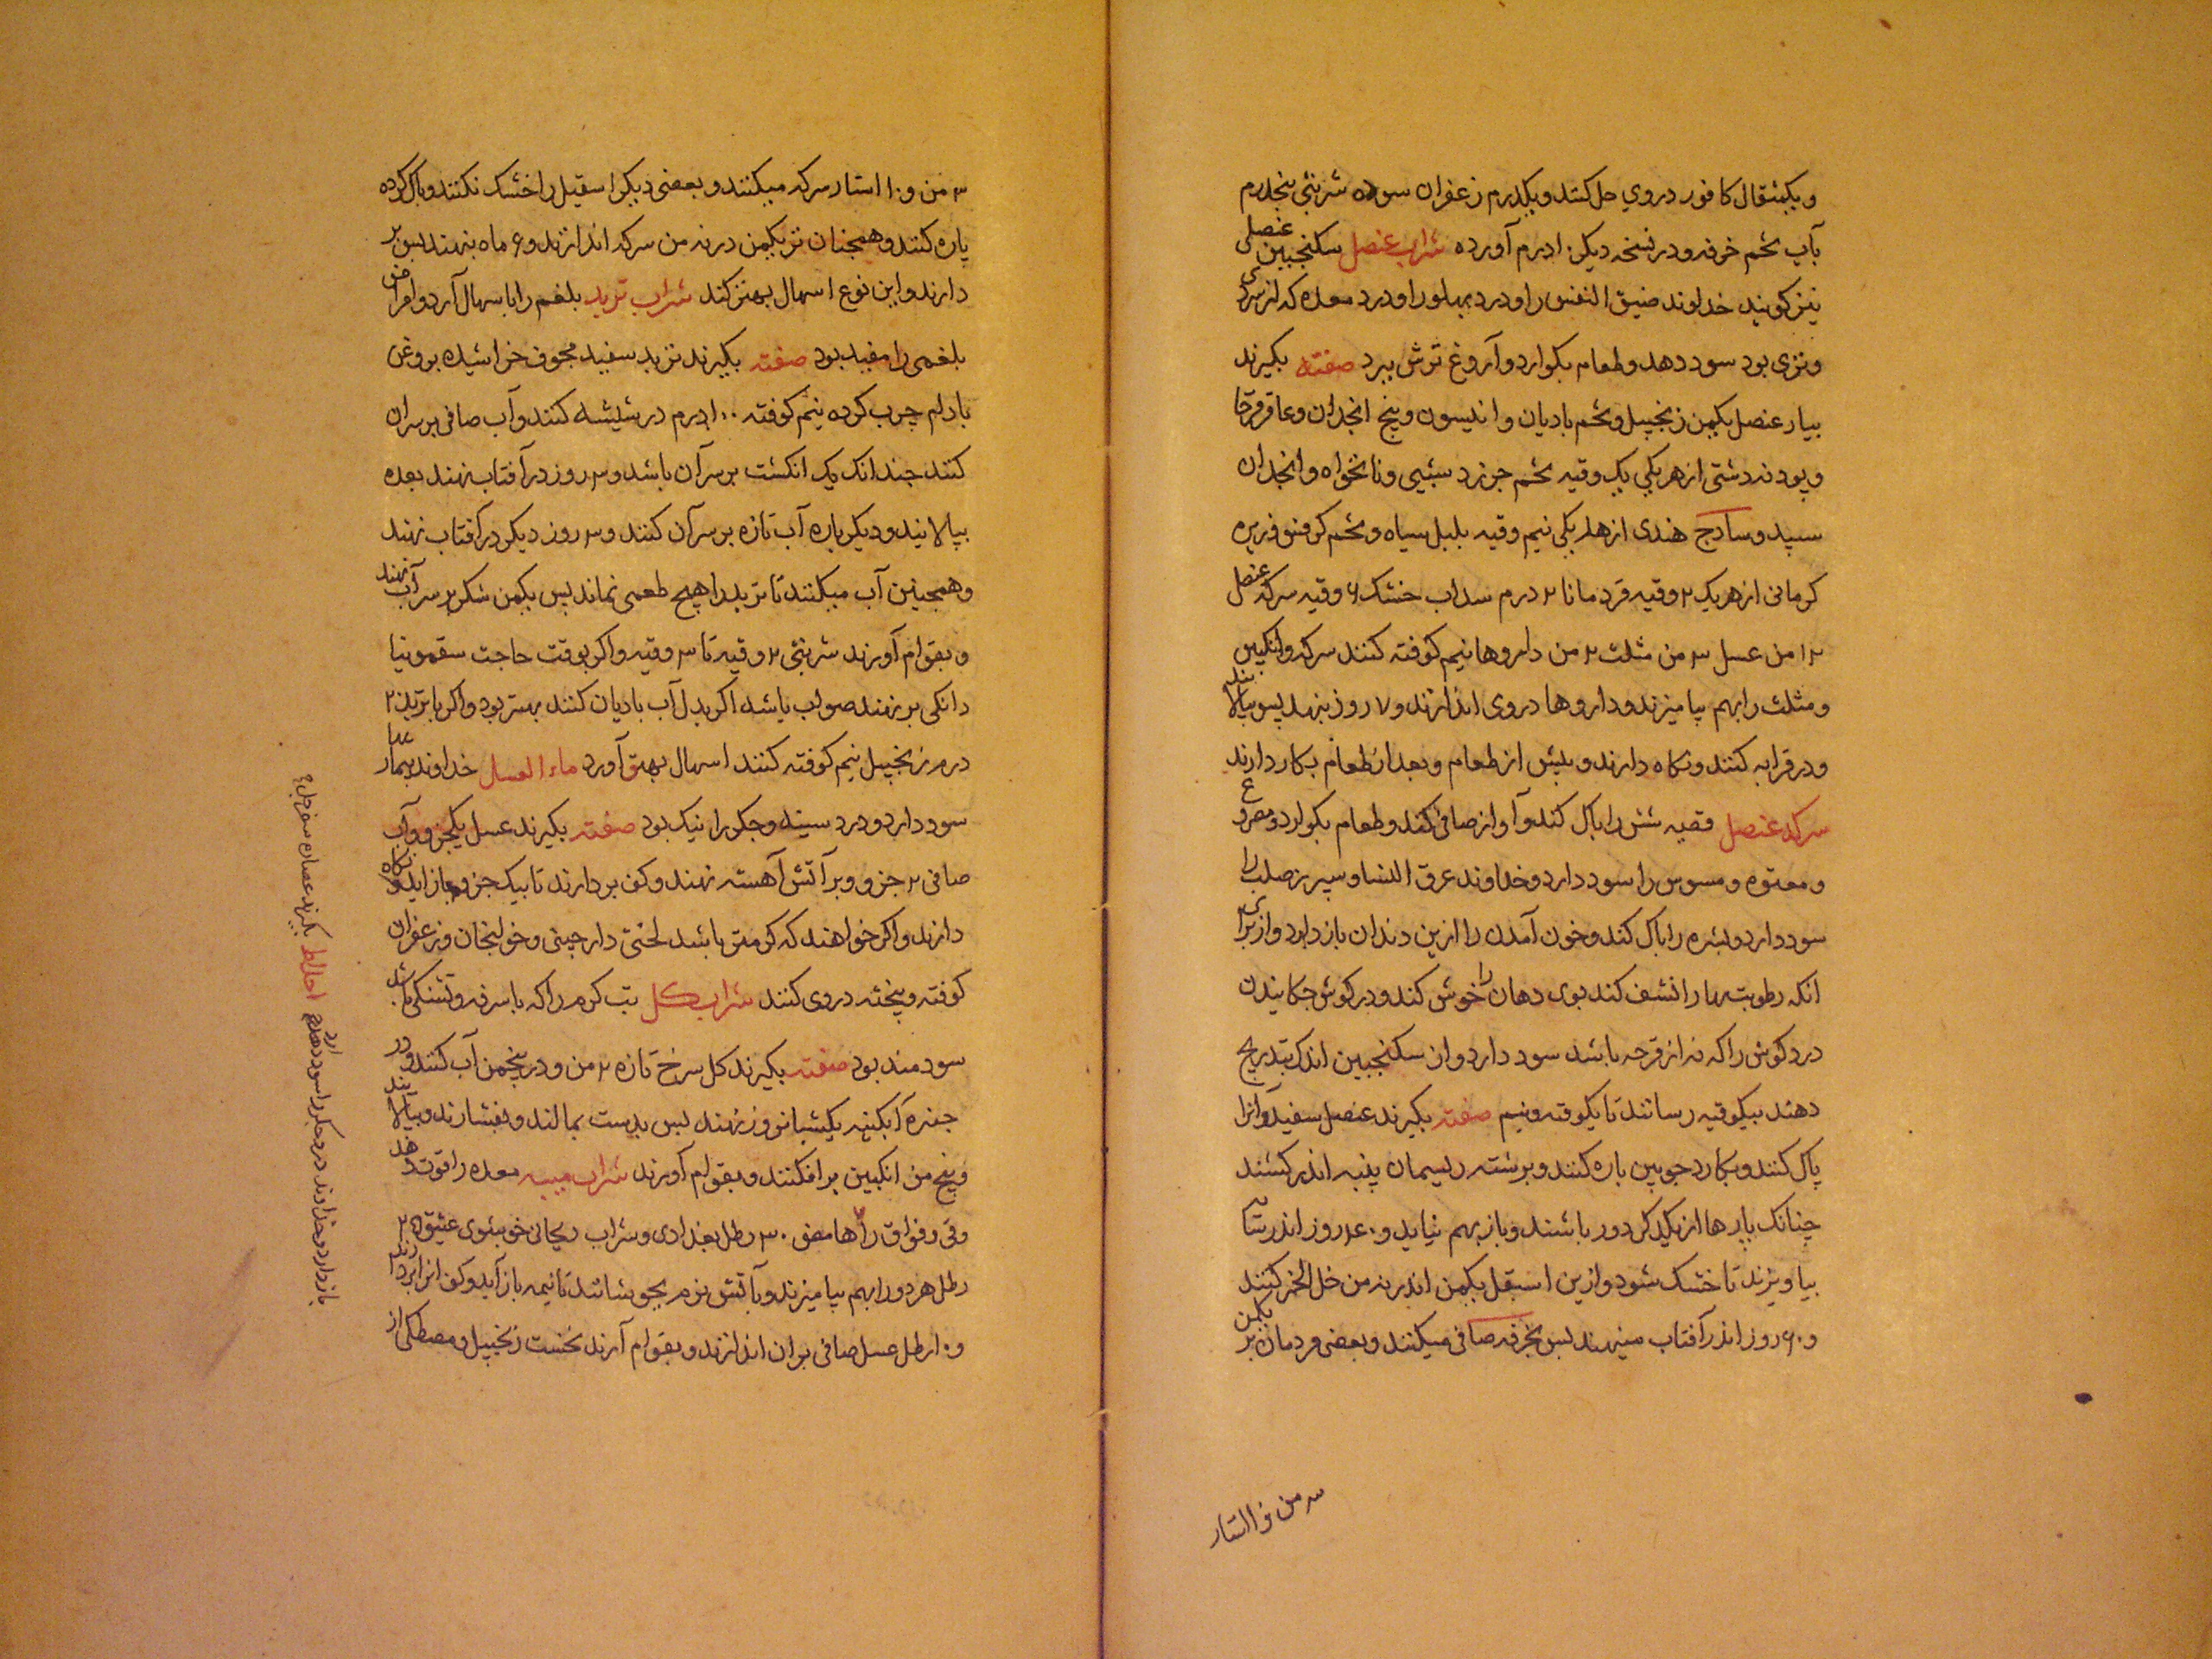 ویکمثقال کافور در وی حل کنند ویکدرم زعفران سوده شربتی پنجدرم
بآب تخم خرفه ودر نسخه دیکر ۱۰ درم آورده شراب عنصل سکنجبین عنصلی
نیز کویند خداوند ضیق النفس را ودرد پهلو را ودرد معده که از سردی
وتری بود سود دهد وطعام بکوارد وآروغ ترش ببرد صفته بکیرند
بیار عنصل یکمن زنجبیل وتخم بادیان وانیسون وبیخ انجدان وعاقرقرحا
وپودنه دشتی از هر یکی یک وقیه تخم جزر دشتی ونانخواه وانجدان
سپید وسادج هندی از هر یکی نیم وقیه پلپل سیاه وتخم کرفس وزیره
کرمانی از هر یک ۲ وقیه قردمانا ۲ درم سداب خشک ۶ وقیه سرکه عنصل
۱۲ من عسل ۳ من مثلث ۲ من داروها نیم کوفته کنند سرکه وانکبین
ومثلث را بهم بیامیزند وداروها در وی اندازند و۷ روز بنهند پس بپالایند
ودر قرابه کنند ونکاه دارند وپیش از طعام وبعد از طعام بکار دارند
سرکه عنصل قصبه شش را پاک کند وآواز صافی کند وطعام بکوارد ومصروع
ومعتوه ومسوس را سود دارد وخداوند عرق النسا وسپرز صلب را
سود دارد وبشره را پاک کند وخون آمدن را از بن دندان باز دارد واز برای
انکه رطوبت بها را نشف کند بوی دهان را خوش کند ودر کوش چکانیدن
درد کوش را که نه از قرحه باشد سود دارد وان سکنجبین اندک بتدریج
دهند بیکوقیه رسانند تا یکوقیه ونیم صفته بکیرند عنصل سفید وآنرا
پاک کنند وبکارد چوبین پاره کنند وبرشته ریسمان پنبه اندر کشند
چنانک پارها از یکدیکر دور باشند وباز بهم نیاید و۴۰ روز اندر سایه
بیاویزند تا خشک شود واز این اسقیل یکمن اندر نه من خل الخمر کنند
و۶۰ روز اندر آفتاب مینهند پس بخرقه صافی میکنند وبعضی مردمان بر یکمن
سه من و۱۰ استار
۳ من و۱۰ استار سرکه میکنند وبعضی دیکر اسقیل را خشک نکنند وپاک کرده
پاره کنند وهمچنان تر یکمن در نه من سرکه اندازند و۶ ماه بنهند پس بر
دارند واین نوع اسهال بهتر کند شراب تربد بلغم را باسهال آرد وامراض
بلغمی را مفید بود صفته بکیرند تربد سفید مجوف خراشیده بروغن
بادام چرب کرده نیم کوفته ۱۰۰ درم در شیشه کنند وآب صافی بر سر ان
کنند چندانک یک انکشت بر سر آن باشد و۳ روز در آفتاب نهند بعده
بپالایند ودیکر باره آب تازه بر سر آن کنند و۳ روز دیکر در آفتاب نهند
وهمچنین آب میکنند تا تربد را هیچ طعمی نماند پس یکمن شکر بر سر آب نهند
وبقوام آورند شربتی ۲ وقیه تا ۳ وقیه واکر بوقت حاجت سقمونیا
دانکی بر نهند صواب باشد اکر بدل آب بادیان کنند بهتر بود واکر با تربد ۲
درم زنجبیل نیم کوفته کنند اسهال بهتر آورد ماء العسل خداوند بیماریها
سود دارد ودرد سینه وجکر را نیک بود صفته بکیرند عسل یکجزو وآب
صافی ۲ جزو وبر آتش آهسته نهند وکف بردارند تا بیک جزو باز اید ونکاه
دارند واکر خواهند که کرمتر باشد لختی دارچینی وخولنجان وزعفران
کوفته وبیخته در وی کنند شراب کل تب کرم را که با سرفه وتشنکی باشد
سودمند بود صفته بکیرند کل سرخ تازه ۲ من ودر پنجمن آب کنند ودر
جفره آبکینه یکشبانروز نهند پس بدست بمالند وبفشارند وبپالایند
وپنج من انکبین برافکنند وبقوام آورند شراب میبه معده را قوت دهد
وقی وفواق را هامض ۳۰ رطل بغدادی وشراب ریحانی خوشبوی عتیق ۲۵
رطل هر دو را بهم بیامیزند وبآتش نرم بجوشانند تا نیمه باز آید وکف انرا بردارند
و۱۰ رطل عسل صافی بر ان اندازند وبقوام آرند نخست زنجبیل ومصطکی از
باز دارد وخداوند درد جکر را سود دهد احلاط بکیرند عصاره سفرجل